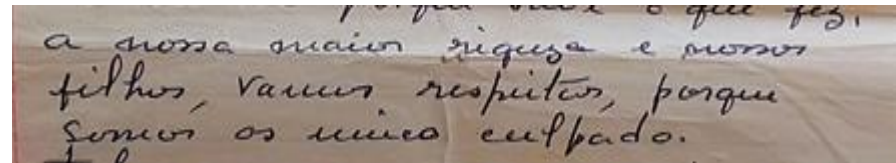 porque sabe o que fez,
a nossa maior riqueza e nossos
filhos, vamos respeitar, porque
somos os unico culpado.